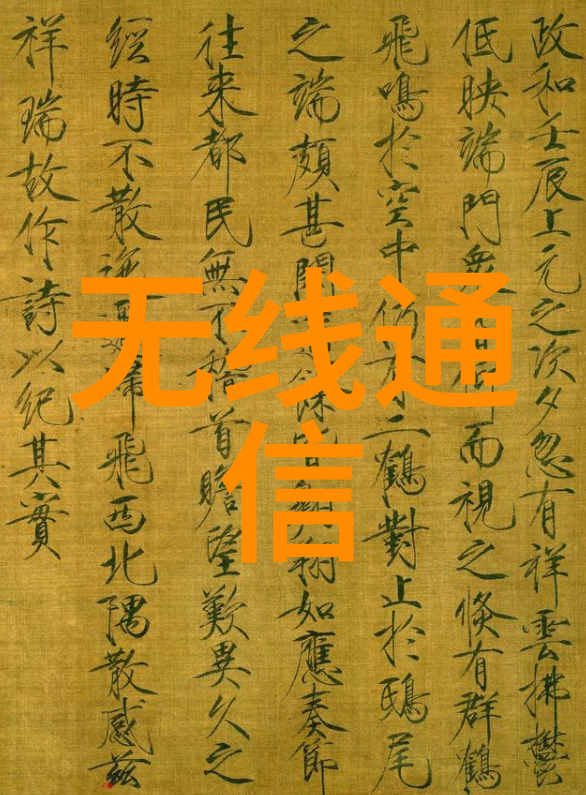 政和壬辰上元之次夕忽有祥雲拂鬱
低映端門衆皆仰而視之倏有群鶴
飛鳴於空中仍有二鶴對止於鴟尾
之端頗甚閑餘皆翱翔如應奏節
往來都民無不稽首瞻望歎異久之
經時不散迤邐歸飛西北隅散感茲
祥瑞故作詩以紀其實
无线通
信